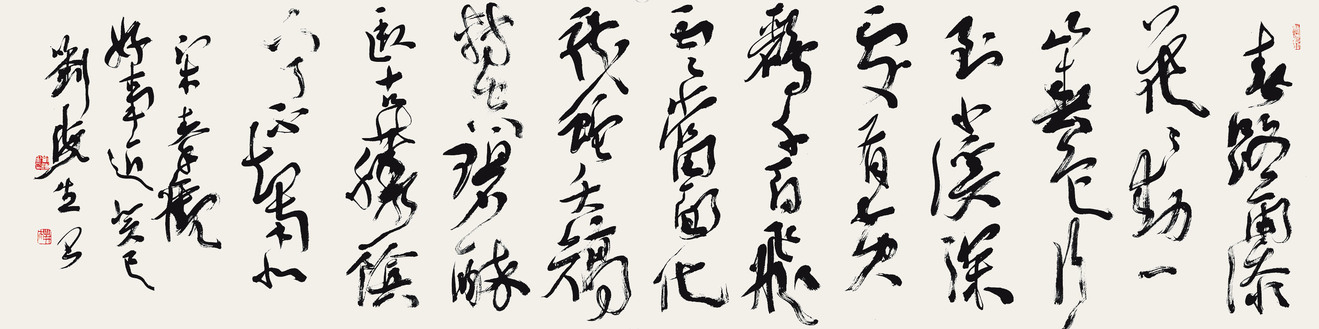 春路雨添
花〻動一
山春色行
到小溪深
處有黄
鸝千百飛
雲當面化
龍蛇夭矯
轉空碧醉
卧古藤陰
下了不知南北
宋秦觀
好事近癸巳
劉生书